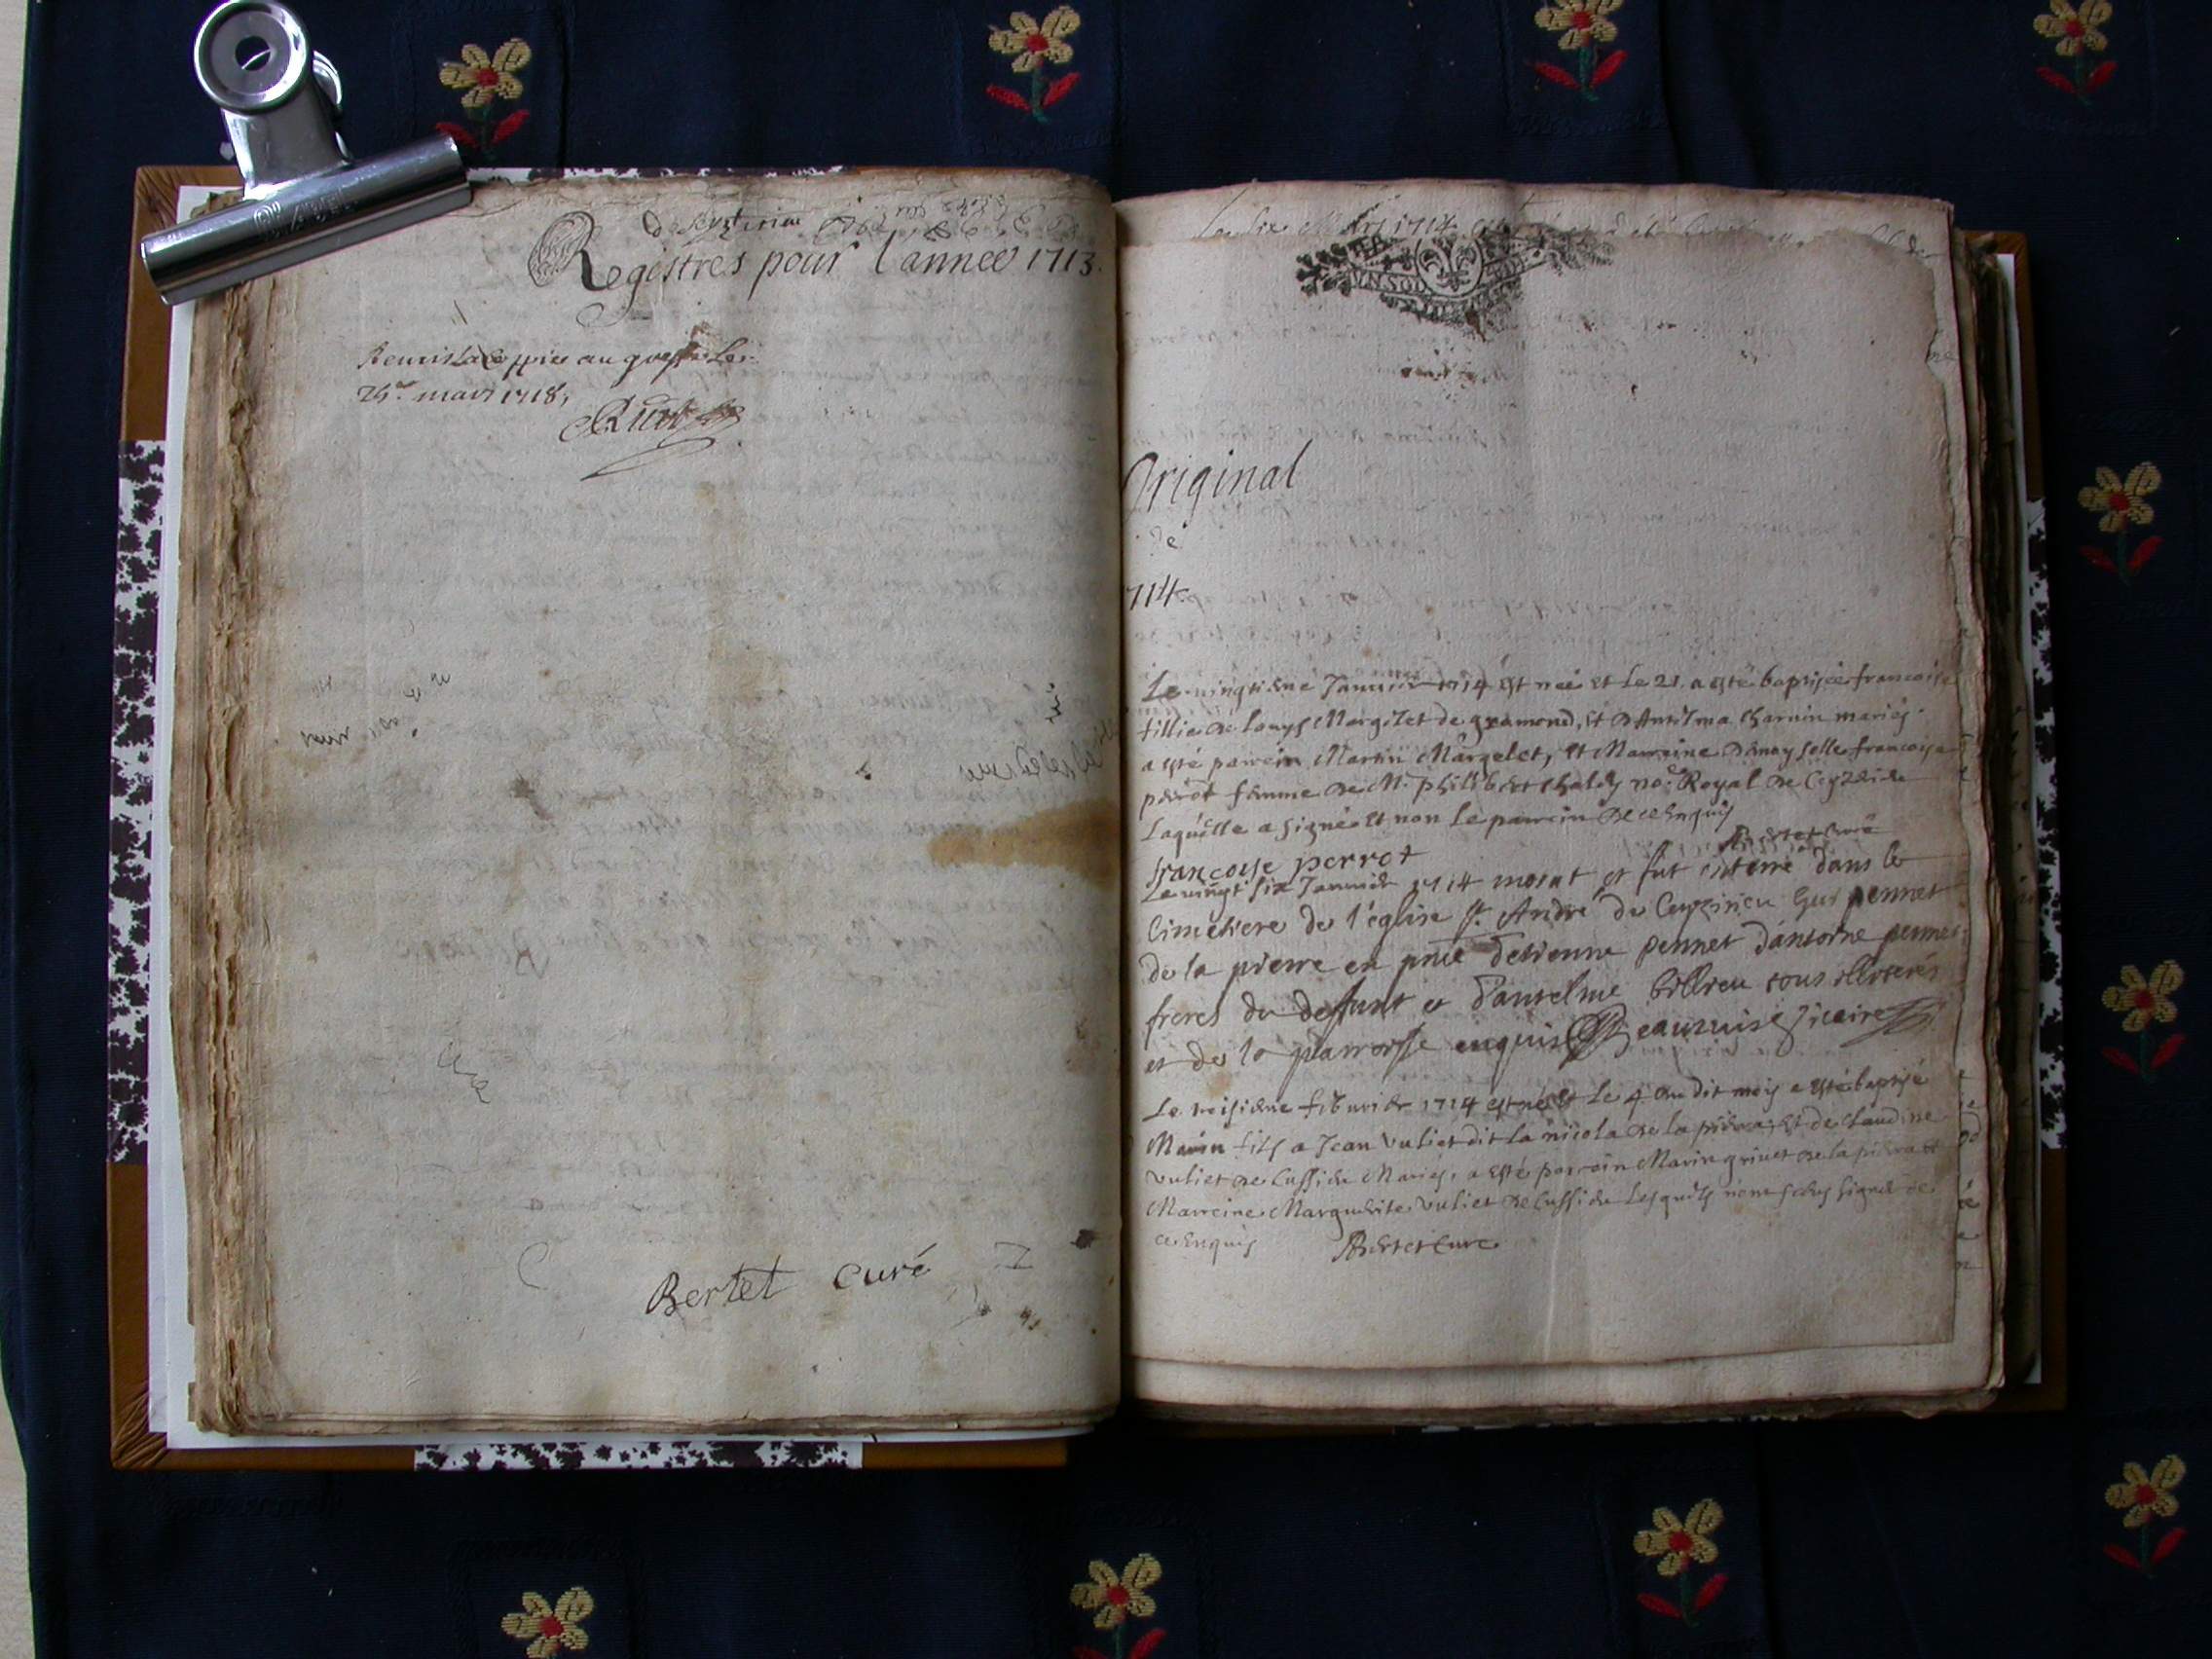 de Ceyzerieu
Registres pour l'annee 1713.
Remis la coppie au greffe le
25e mars 1718,
Bertet curé
Le six Mars 1714
VN SOL
Original
de
1714
Le vingtiéme Janvier 1714 est neé et le 21 a esté baptiseé francoise
fillie de Louys Margelet de gramond, et d'Antelma Charuin mariés.
a esté parrein Martin Margelet, et Marreine Damoyselle francoise
perrot femme de Mr. philibert Chaley no.re Royal de Ceyzerieu
Laquelle a signé et non Le parrein de ce enquis
Bertet Curé
francoise perrot
Le vingt six Janvier 1714 morut et fut enterré dans le
Cimetiere de l'église St. André de Ceyzirieu Guy pennet
de la pierre en pnce d'etienne pennet d'antoine pennet
freres du deffunt et d'antelme billieu tous illiterés
et de la parroisse enquis Beauzuis Vicaire
Le troisiéme febvrier 1714 est né et le 4 du dit mois a esté baptisé
Marin fils a Jean Vuliet dit la nicola de la pierra, et de Claudine
vuliet de Cussieu Mariés, a esté parrein Marin grivet de la pierra et
Marreine Marguerite Vuliet de Cussieu Lesquels n'ont sceu signer de
ce Enquis Bertet Curé